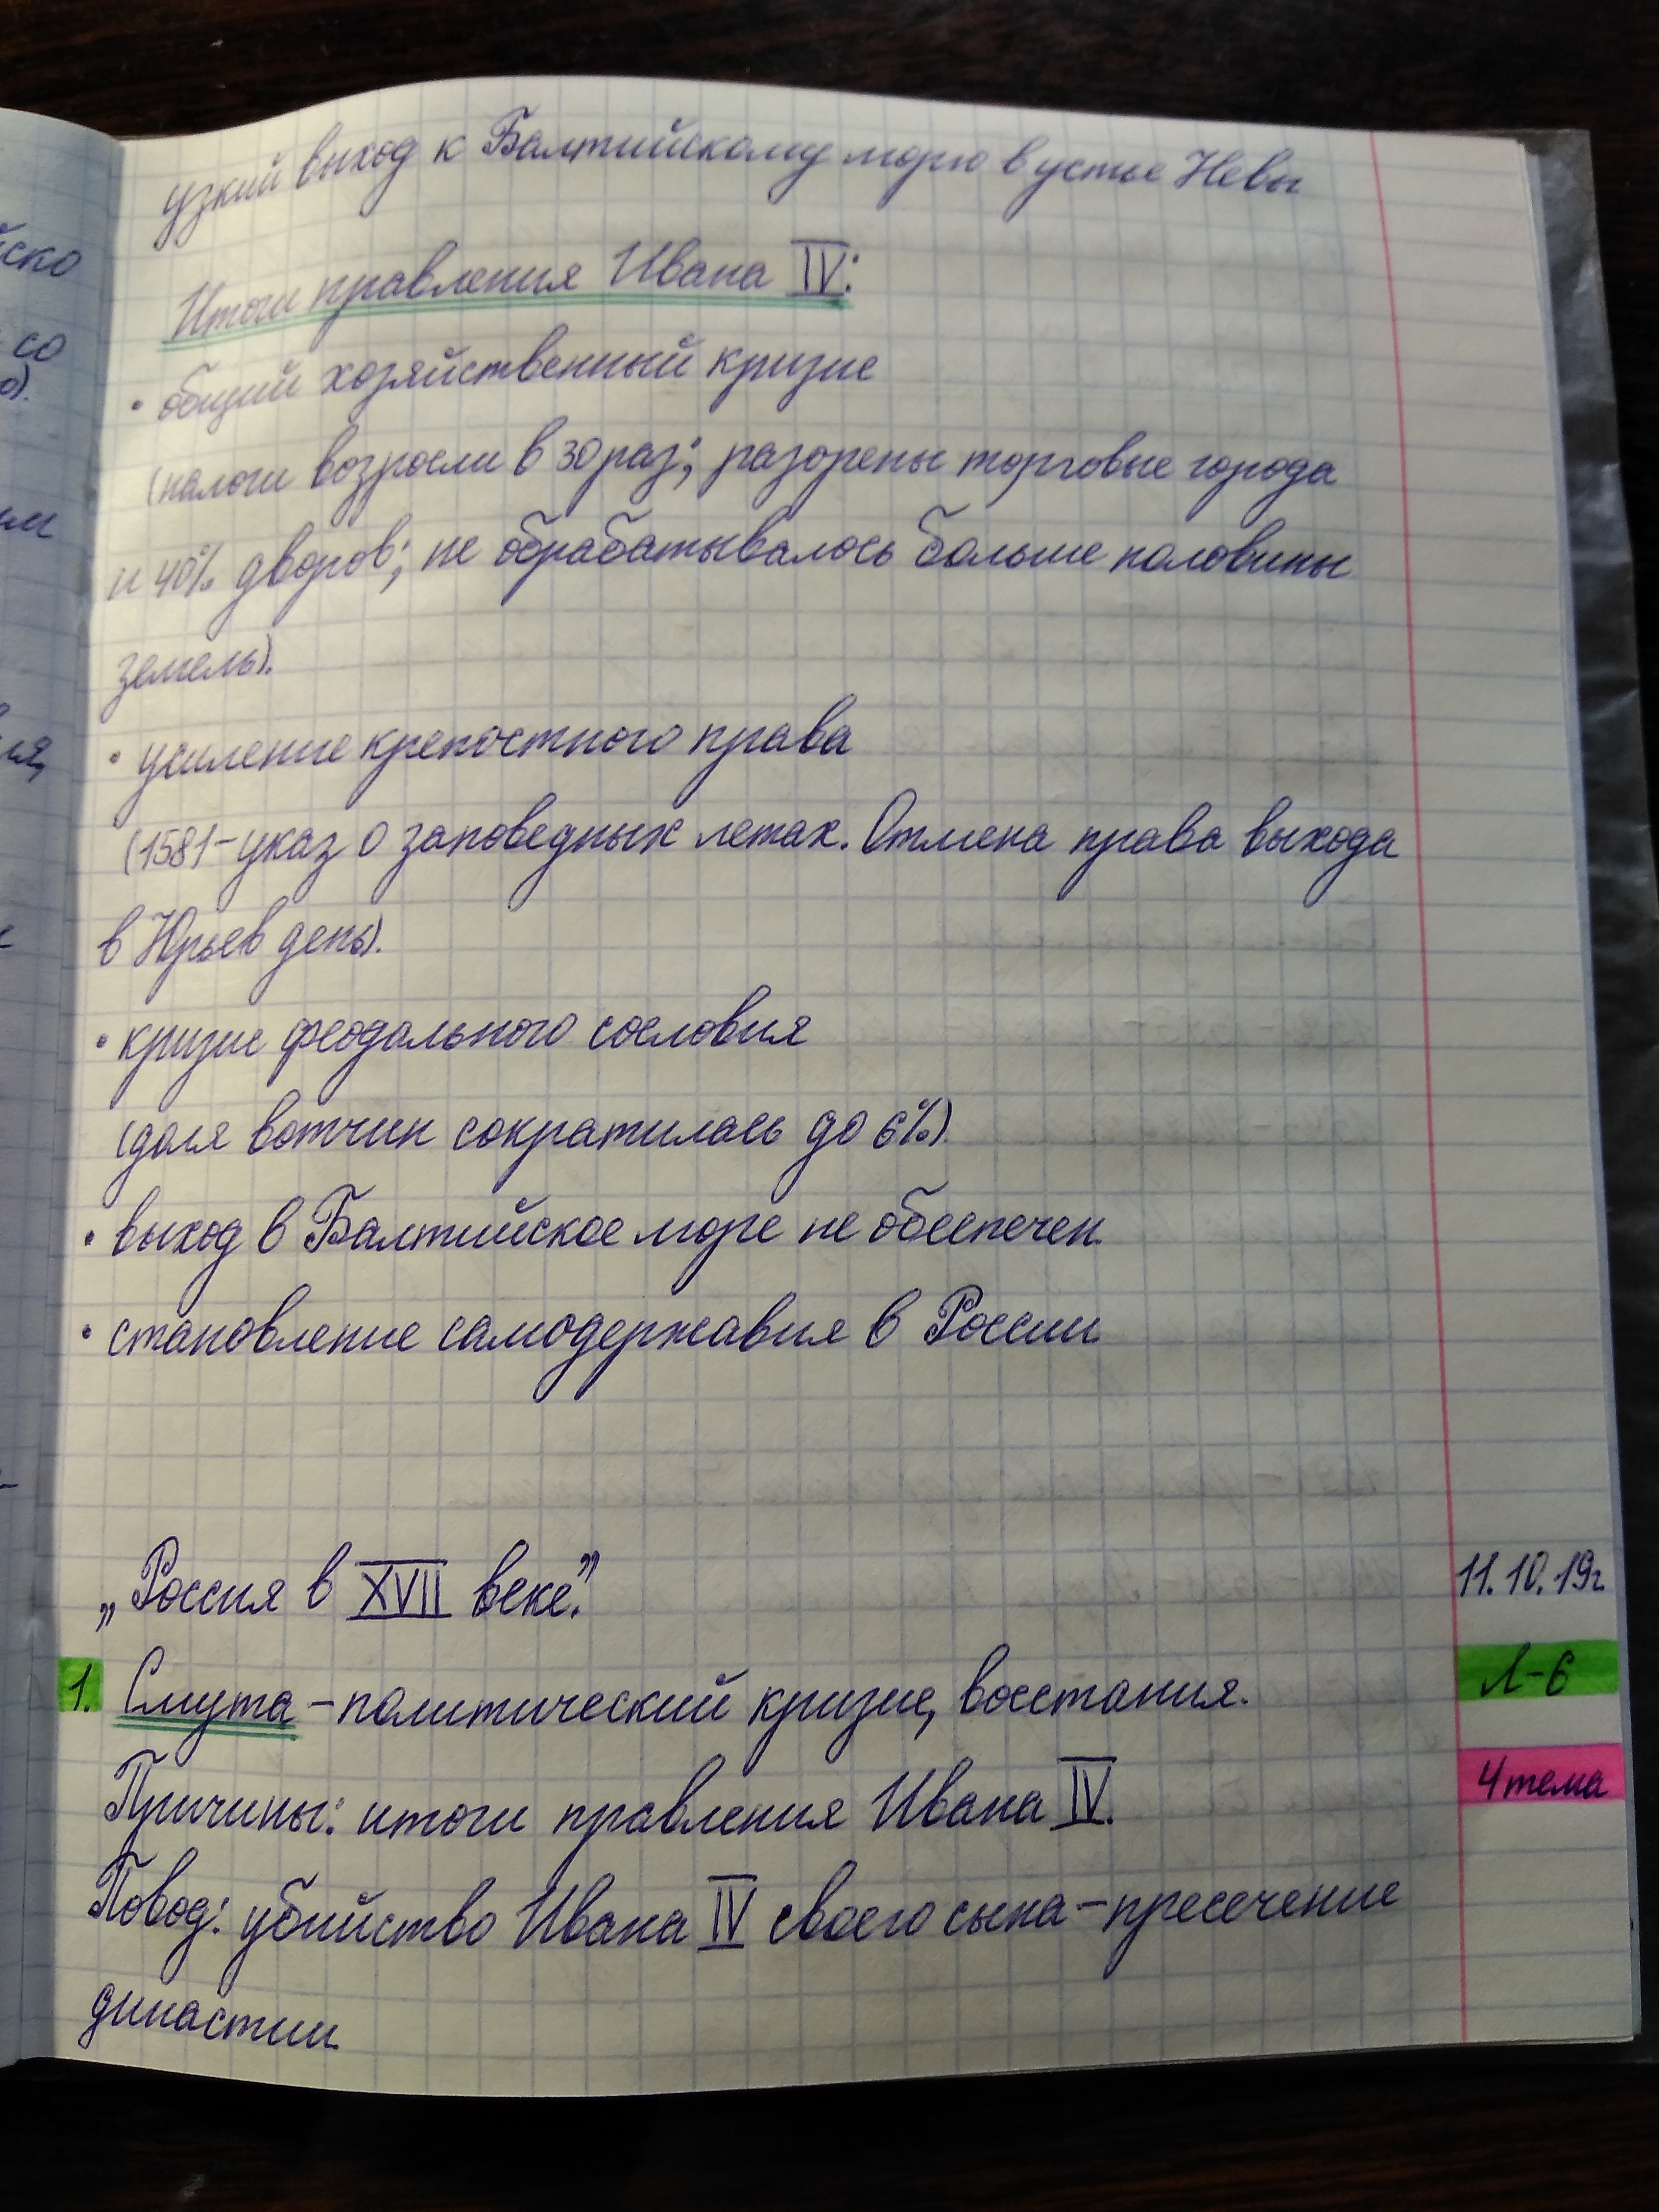 узкий выход к Балтийскому морю в устье Невы
Итоги правления Ивана IV:
• общий хозяйственный кризис
(налоги возросли в 30 раз; разорены торговые города
и 40% дворов; не обрабатывалось больше половины
земель).
• усиление крепостного права
(1581-указ о заповедных летах. Отмена права выхода
в Юрьев день).
• кризис феодального сословия
(доля вотчин сократилась до 6%).
• выход в Балтийское море не обеспечен
• становление самодержавия в России
„Россия в XVII веке."
11.10.19г.
1. Смута - политический кризис, восстания.
Л-6
4 тема
Причины: итоги правления Ивана IV.
Повод: убийство Ивана IV своего сына - пресечение
династии